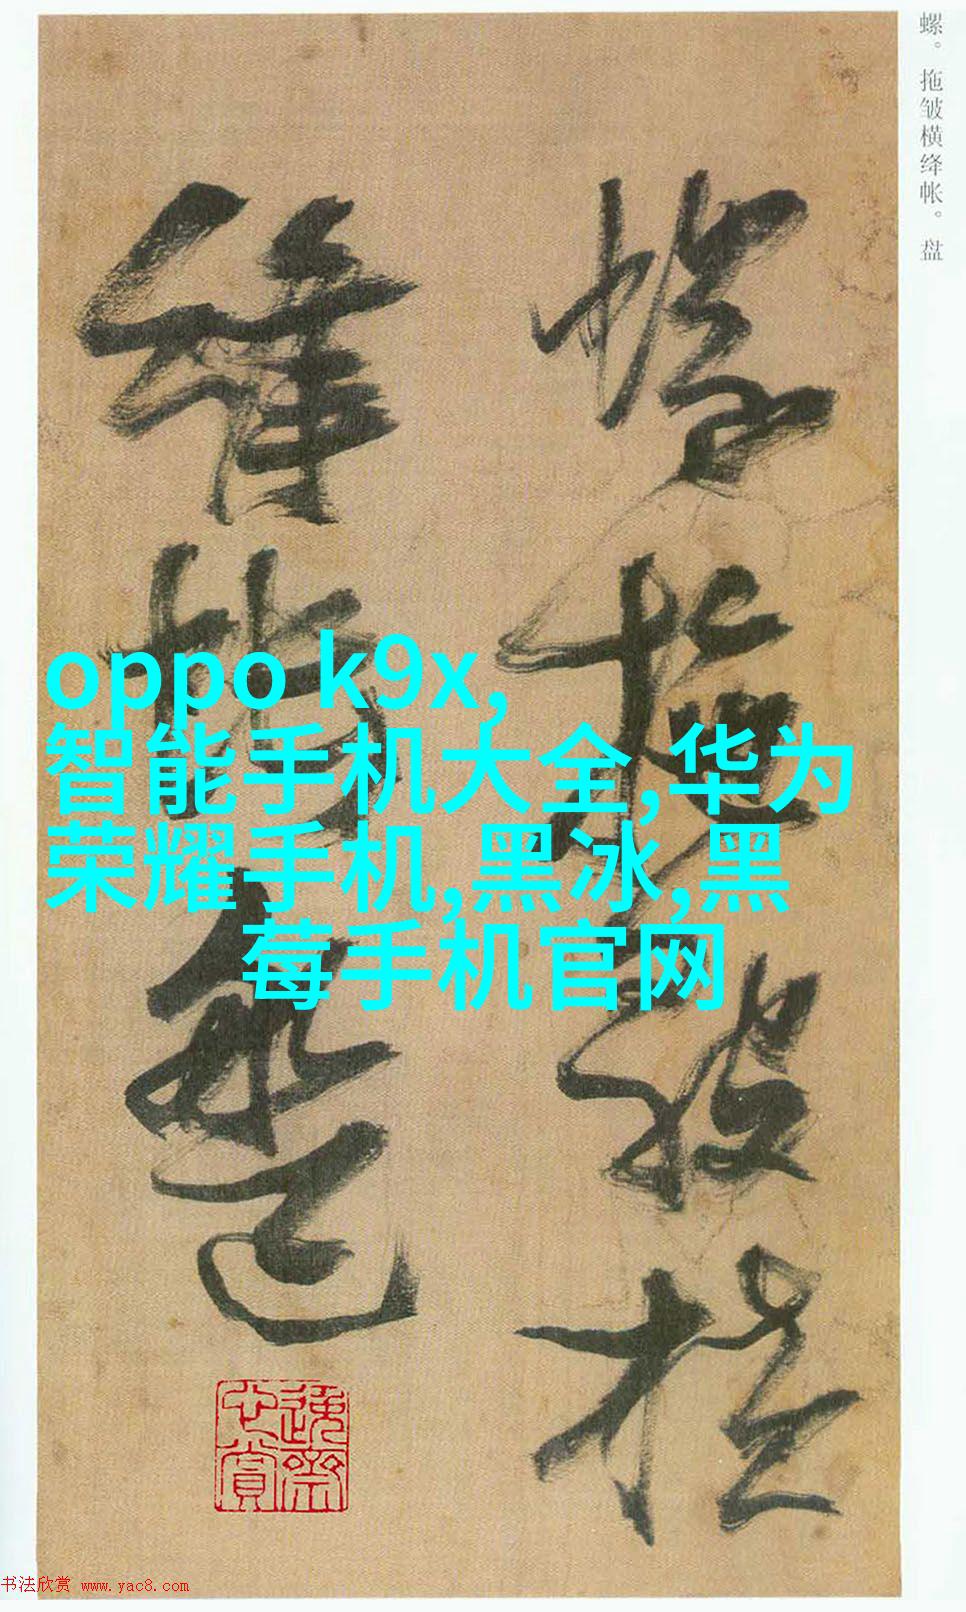 螺。拖皱横绛帐。盘
oppo k9x,
智能手机大全,华为
荣耀手机,黑冰,黑
莓手机官网
螺拖皱横
绛帐盘
书法欣赏 www.yac8.com